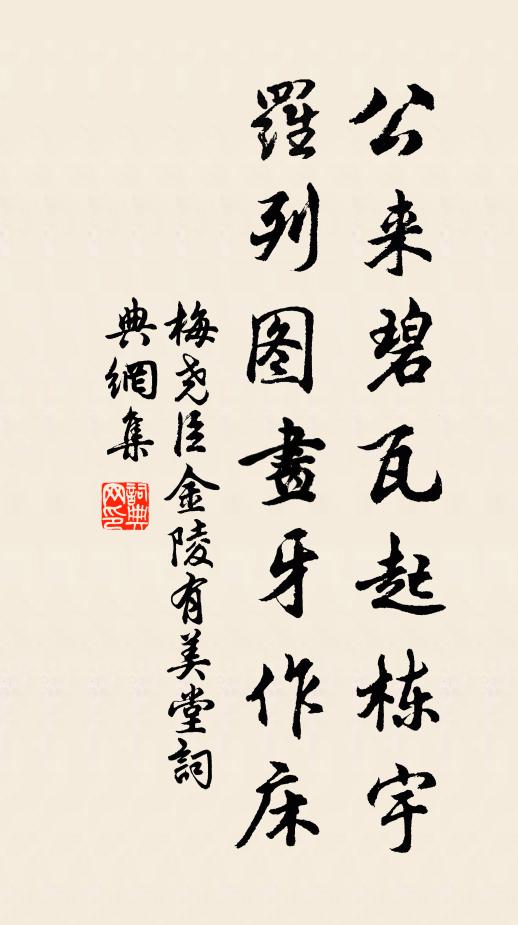 公来碧瓦起栋宇
羅列图畫牙作床
梅尧臣金陵有美堂詞
典網集
詞典网印